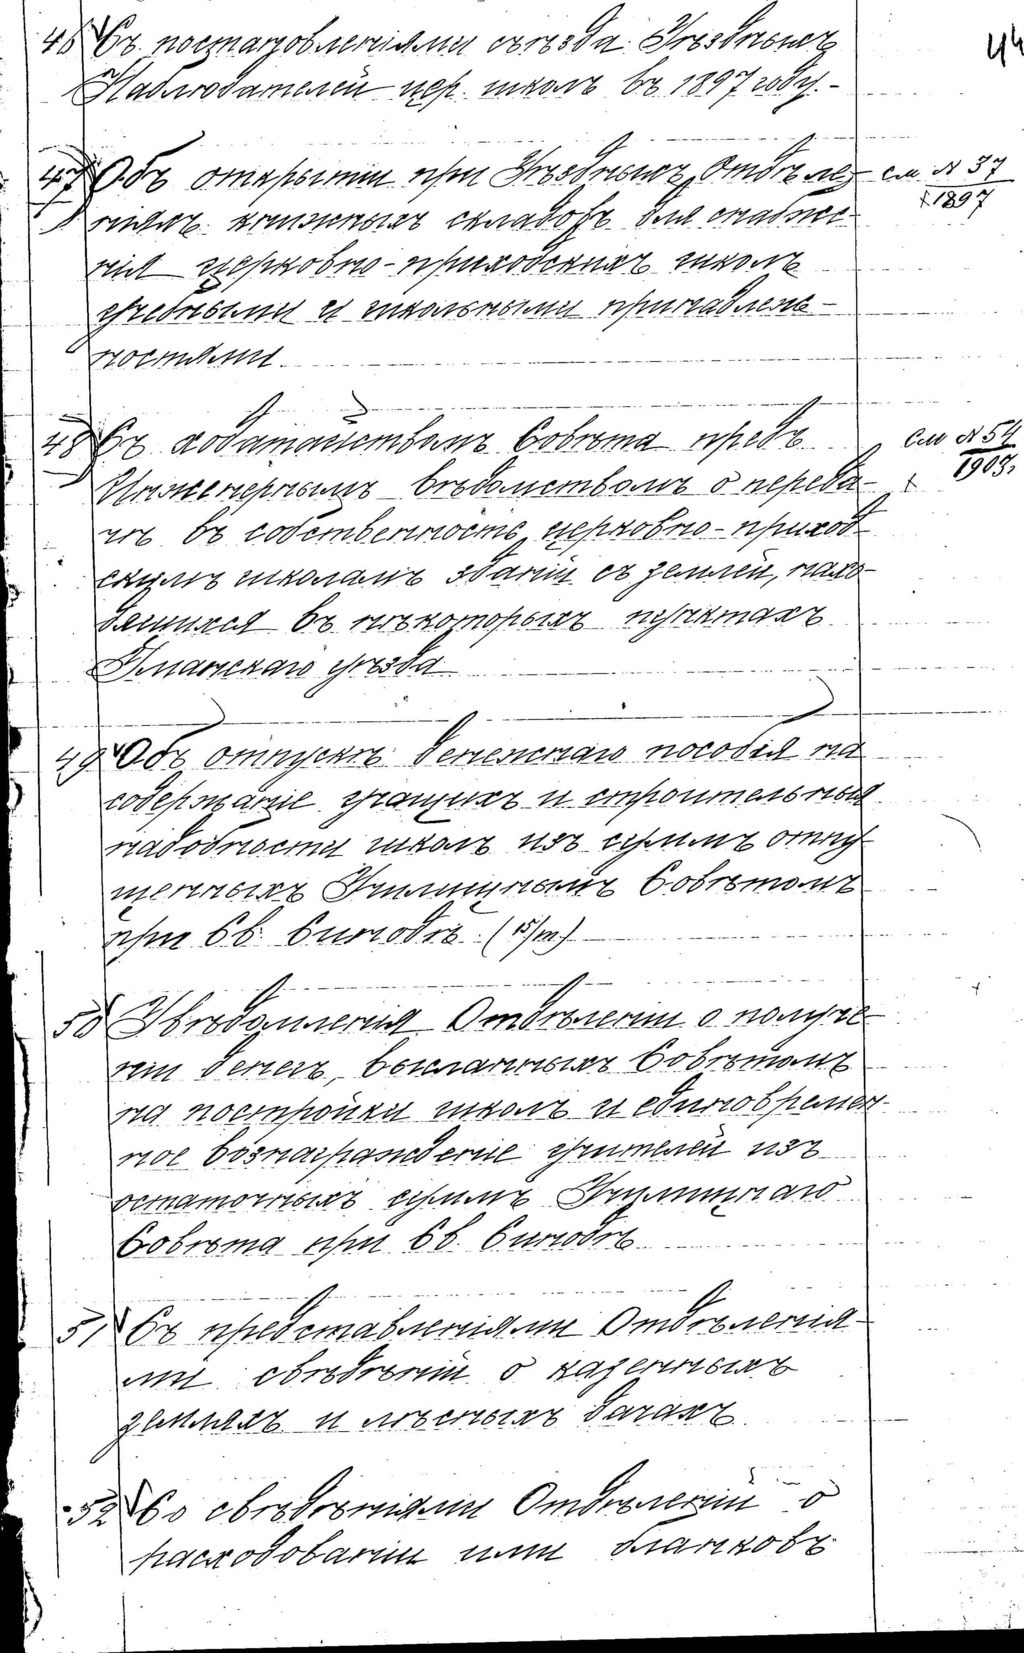 44
46 Съ постановленіями съѣзда Уѣздныхъ
Наблюдателей цер. школъ въ 1897 году. -
47 Объ открытіи при Уѣздныхъ Отдѣле- см. № 37
ніяхъ книжныхъ складовъ для снабже- 1897
нія церковно-приходскихъ школъ
учебными и школьными принадлеж-
ностями.
48 Съ ходатайствомъ Совѣта предъ См № 54
Инженернымъ вѣдомствомъ о переда- 1903.
чѣ въ собственность церковно-приход-
скимъ школамъ зданій съ землей, нахо-
дящихся въ нѣкоторыхъ пунктахъ
Уманскаго уѣзда
49 Объ отпускѣ денежнаго пособія на
содержаніе учащихъ и строительныя
надобности школъ изъ суммъ отпу-
щенныхъ Училищнымъ Совѣтомъ
при Св. Синодѣ. (15/m)
50 Увѣдомленія Отдѣленій о получе-
ніи денегъ, высланныхъ Совѣтомъ
на постройки школъ и единовремен-
ное вознагражденіе учителей изъ
остаточныхъ суммъ Училищнаго
Совѣта при Св. Синодѣ
51 Съ представленіями Отдѣленія-
ми свѣдѣній о казенныхъ
земляхъ и лѣсныхъ дачахъ.
52 Со свѣдѣніями Отдѣленій о
расходованіи ими бланковъ